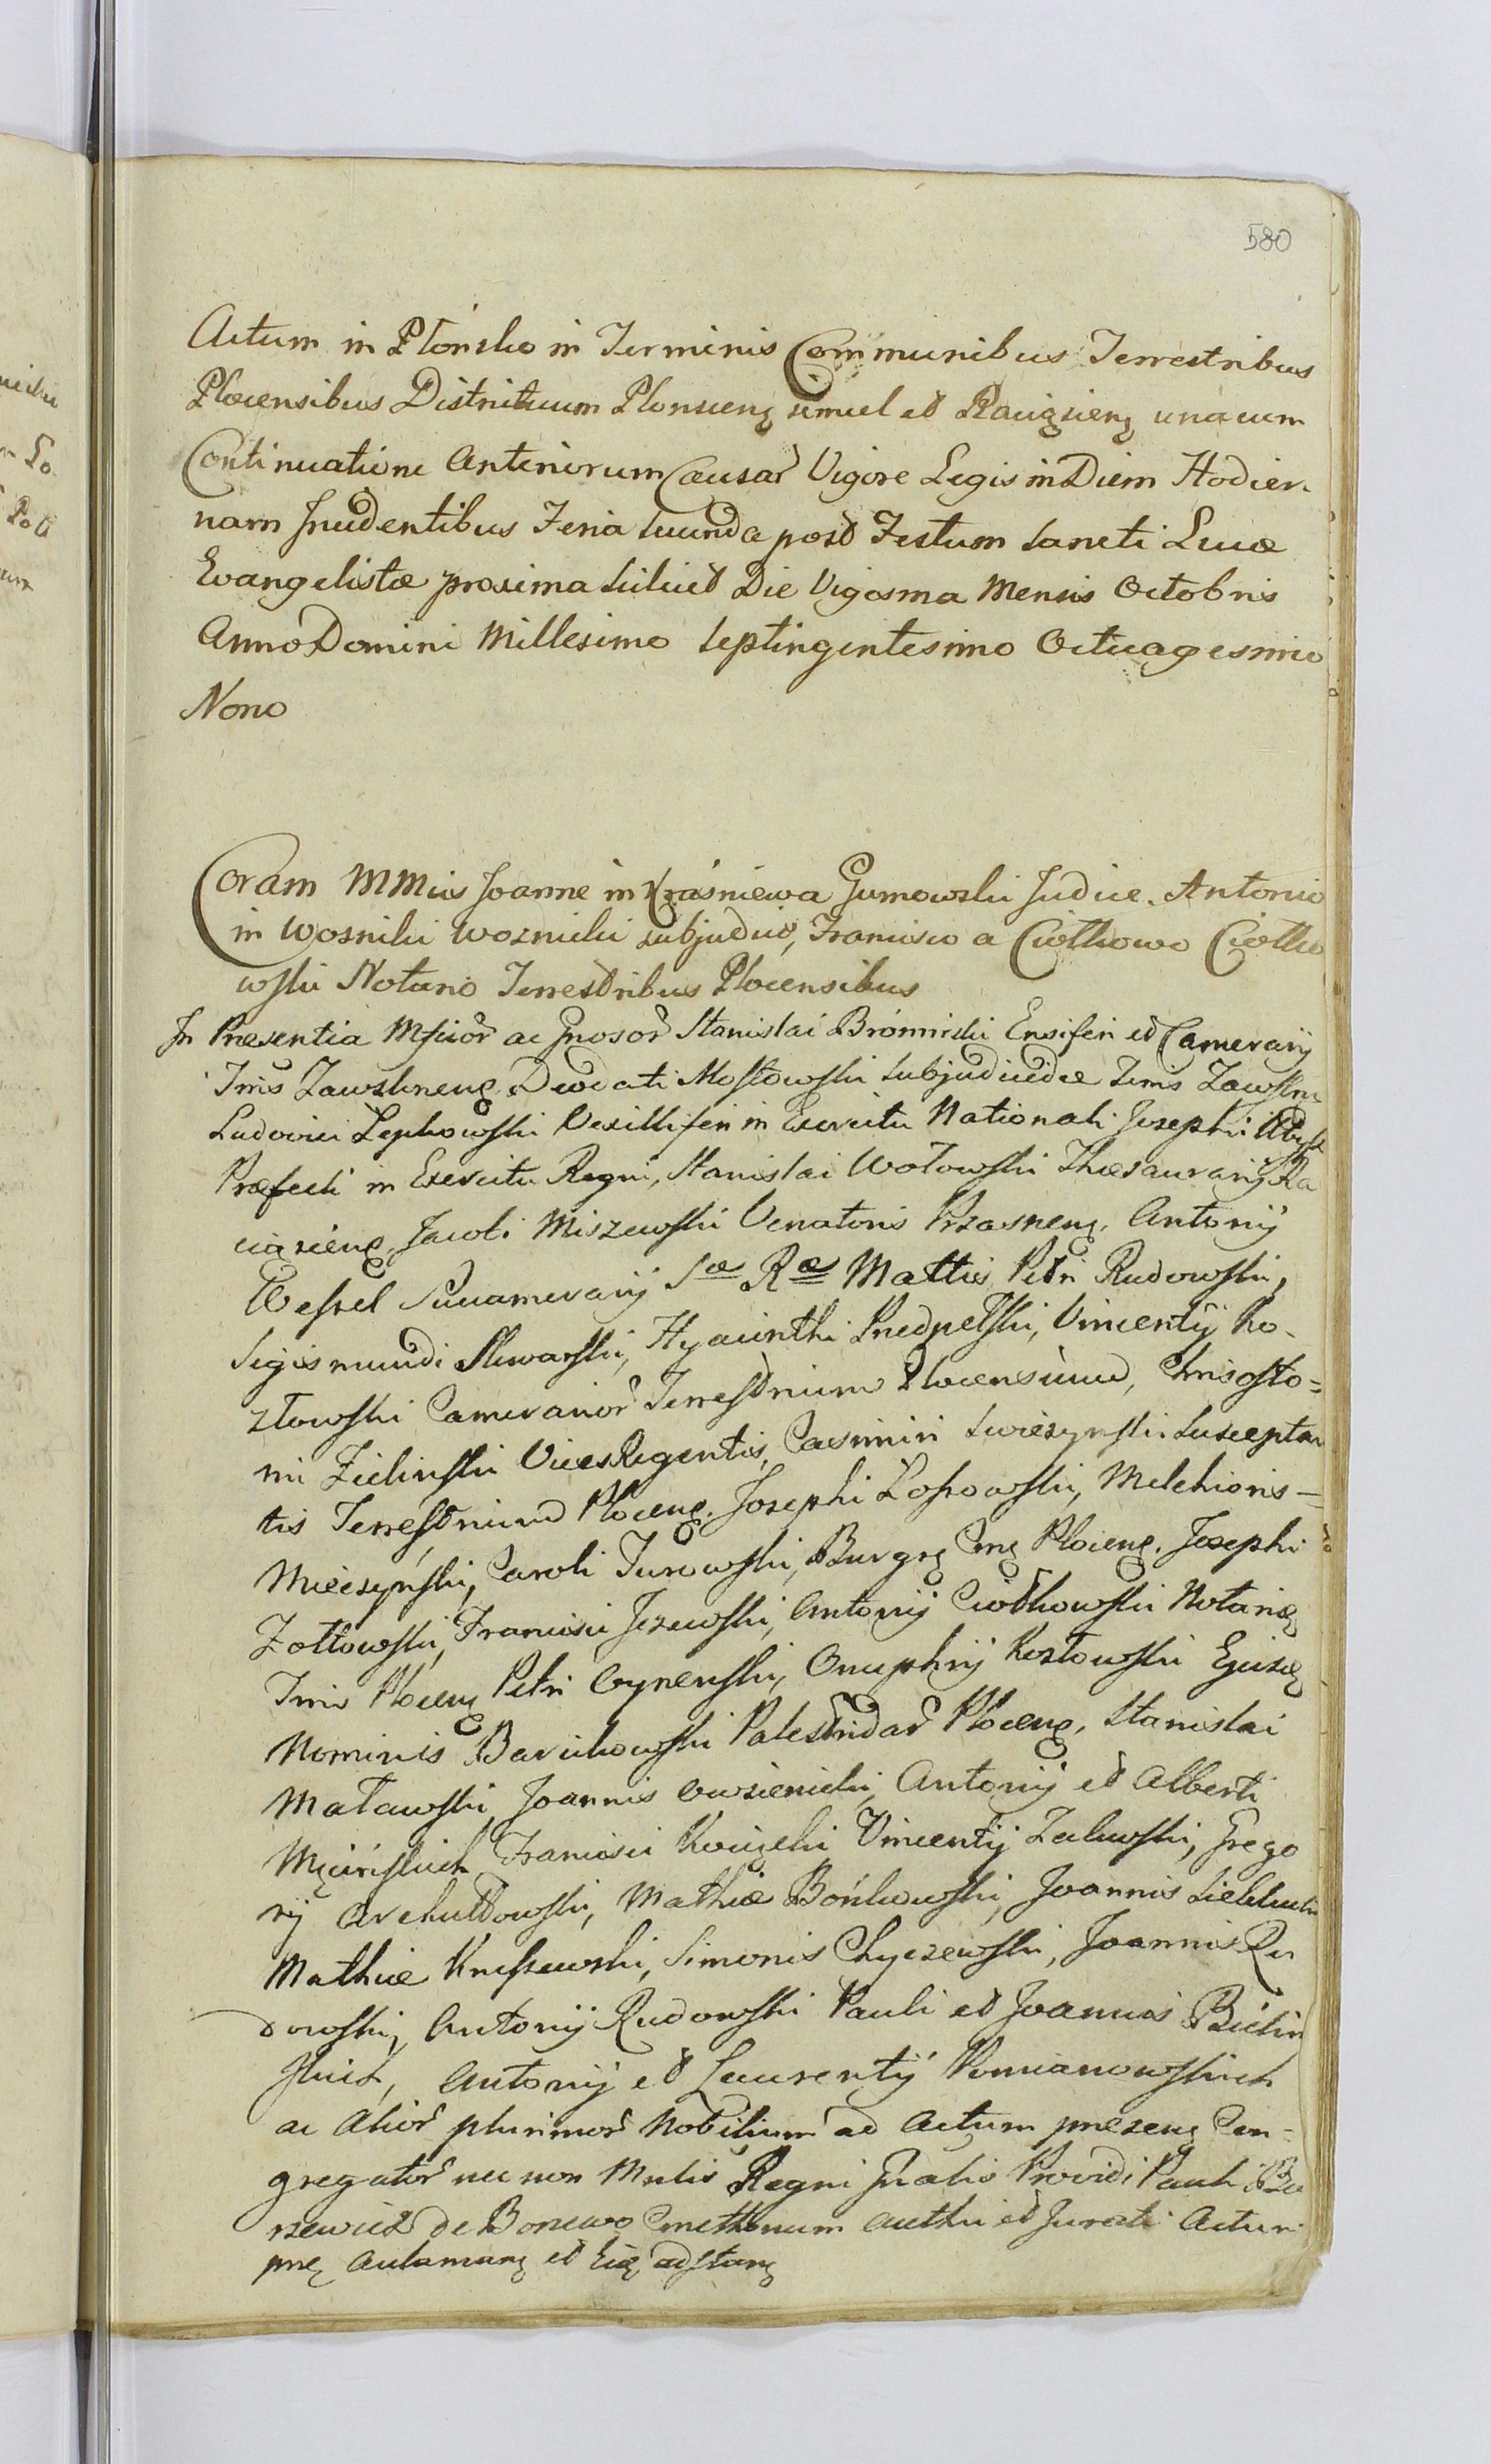 580
Actum in Płońsko in Terminis Communibus Terrestribus
Plocensibus Districtuum Plonscen simul et Raciązien unacum
Continuatione Anteriorum Causar Vigore Legis in Diem Hodier-
nam Incidentibus Feria Secunda post Festum Sancti Lucæ
Evangelistæ proxima Scilicet Die Vigesma Mensis Octobris
Anno Domini Millesimo Septingentesimo Octuagesimo
Nono
Coram MMcis Joanne in Kraśniewa Gumowski Judice. Antonio
in Wosniki Woznicki subjudice, Francisco a Ciółkowo Ciołko
wski Notario Terrestribus Plocensibus
In Presentia Mficor ac Gnosor Stanislai Bromirski Ensiferi et Camerarij
Tris Zawskrnen. Deodati Mostowski Subjudicidæ Terris Zawskrn
Ludovici Lepkowski Vexilliferi in Exercitu Nationali Josephi
Præfecti in Exercitu Regni, Stanislai Wołowski Thesaurarij Ra
ciązien, Jacobi Miszewski Venatoris Przasnen. Antonij
Wessel Succamerarij Sæ Ræ Mattis, Petri Rudowski,
Sigismundi Skwarski, Hyacinthi Przedpełski, Vincentij Ko-
złowski Camerarior Terrestrium Plocensium, Chrisosto=
mi Zielinski Vices Regentis, Casimiri Swieszynski Susceptan
tis Terrestrium Plocen. Josephi Łossowski, Melchioris =
Mieczyński, Caroli Turowski, Burgr Cn Plocen. Josephi
Zołtowski, Francisci Jezewski, Antonij Ciołkowski Notario
Tris Plocen Petri Cynerski, Onuphrij Kozłowski Ejusd
Nominis Barcikowski Palestridar Plocen, Stanislai
Maławski Joannis Owsienicki, Antonij et Alberti
Mącińskich Francisci Kocięcki Vincentij Zalewski, Grego
rij Archutowski, Mathiæ Bońkowski, Joannis
Mathiæ Kruszewski, Simonis Chyczewski, Joannis Ru
dowski, Antonij Rudowski Pauli et Joannis Bielin
skich, Antonij et Laurentij Pomianowskich
ac Alior plurimor Nobilium ad Actum presens Con=
gregator nec non Mnlis Regni Gnalis Providi Pauli
de Bonewo Cmethonum Authci et Jurati Actum
pns Aclamans et Eid adstans